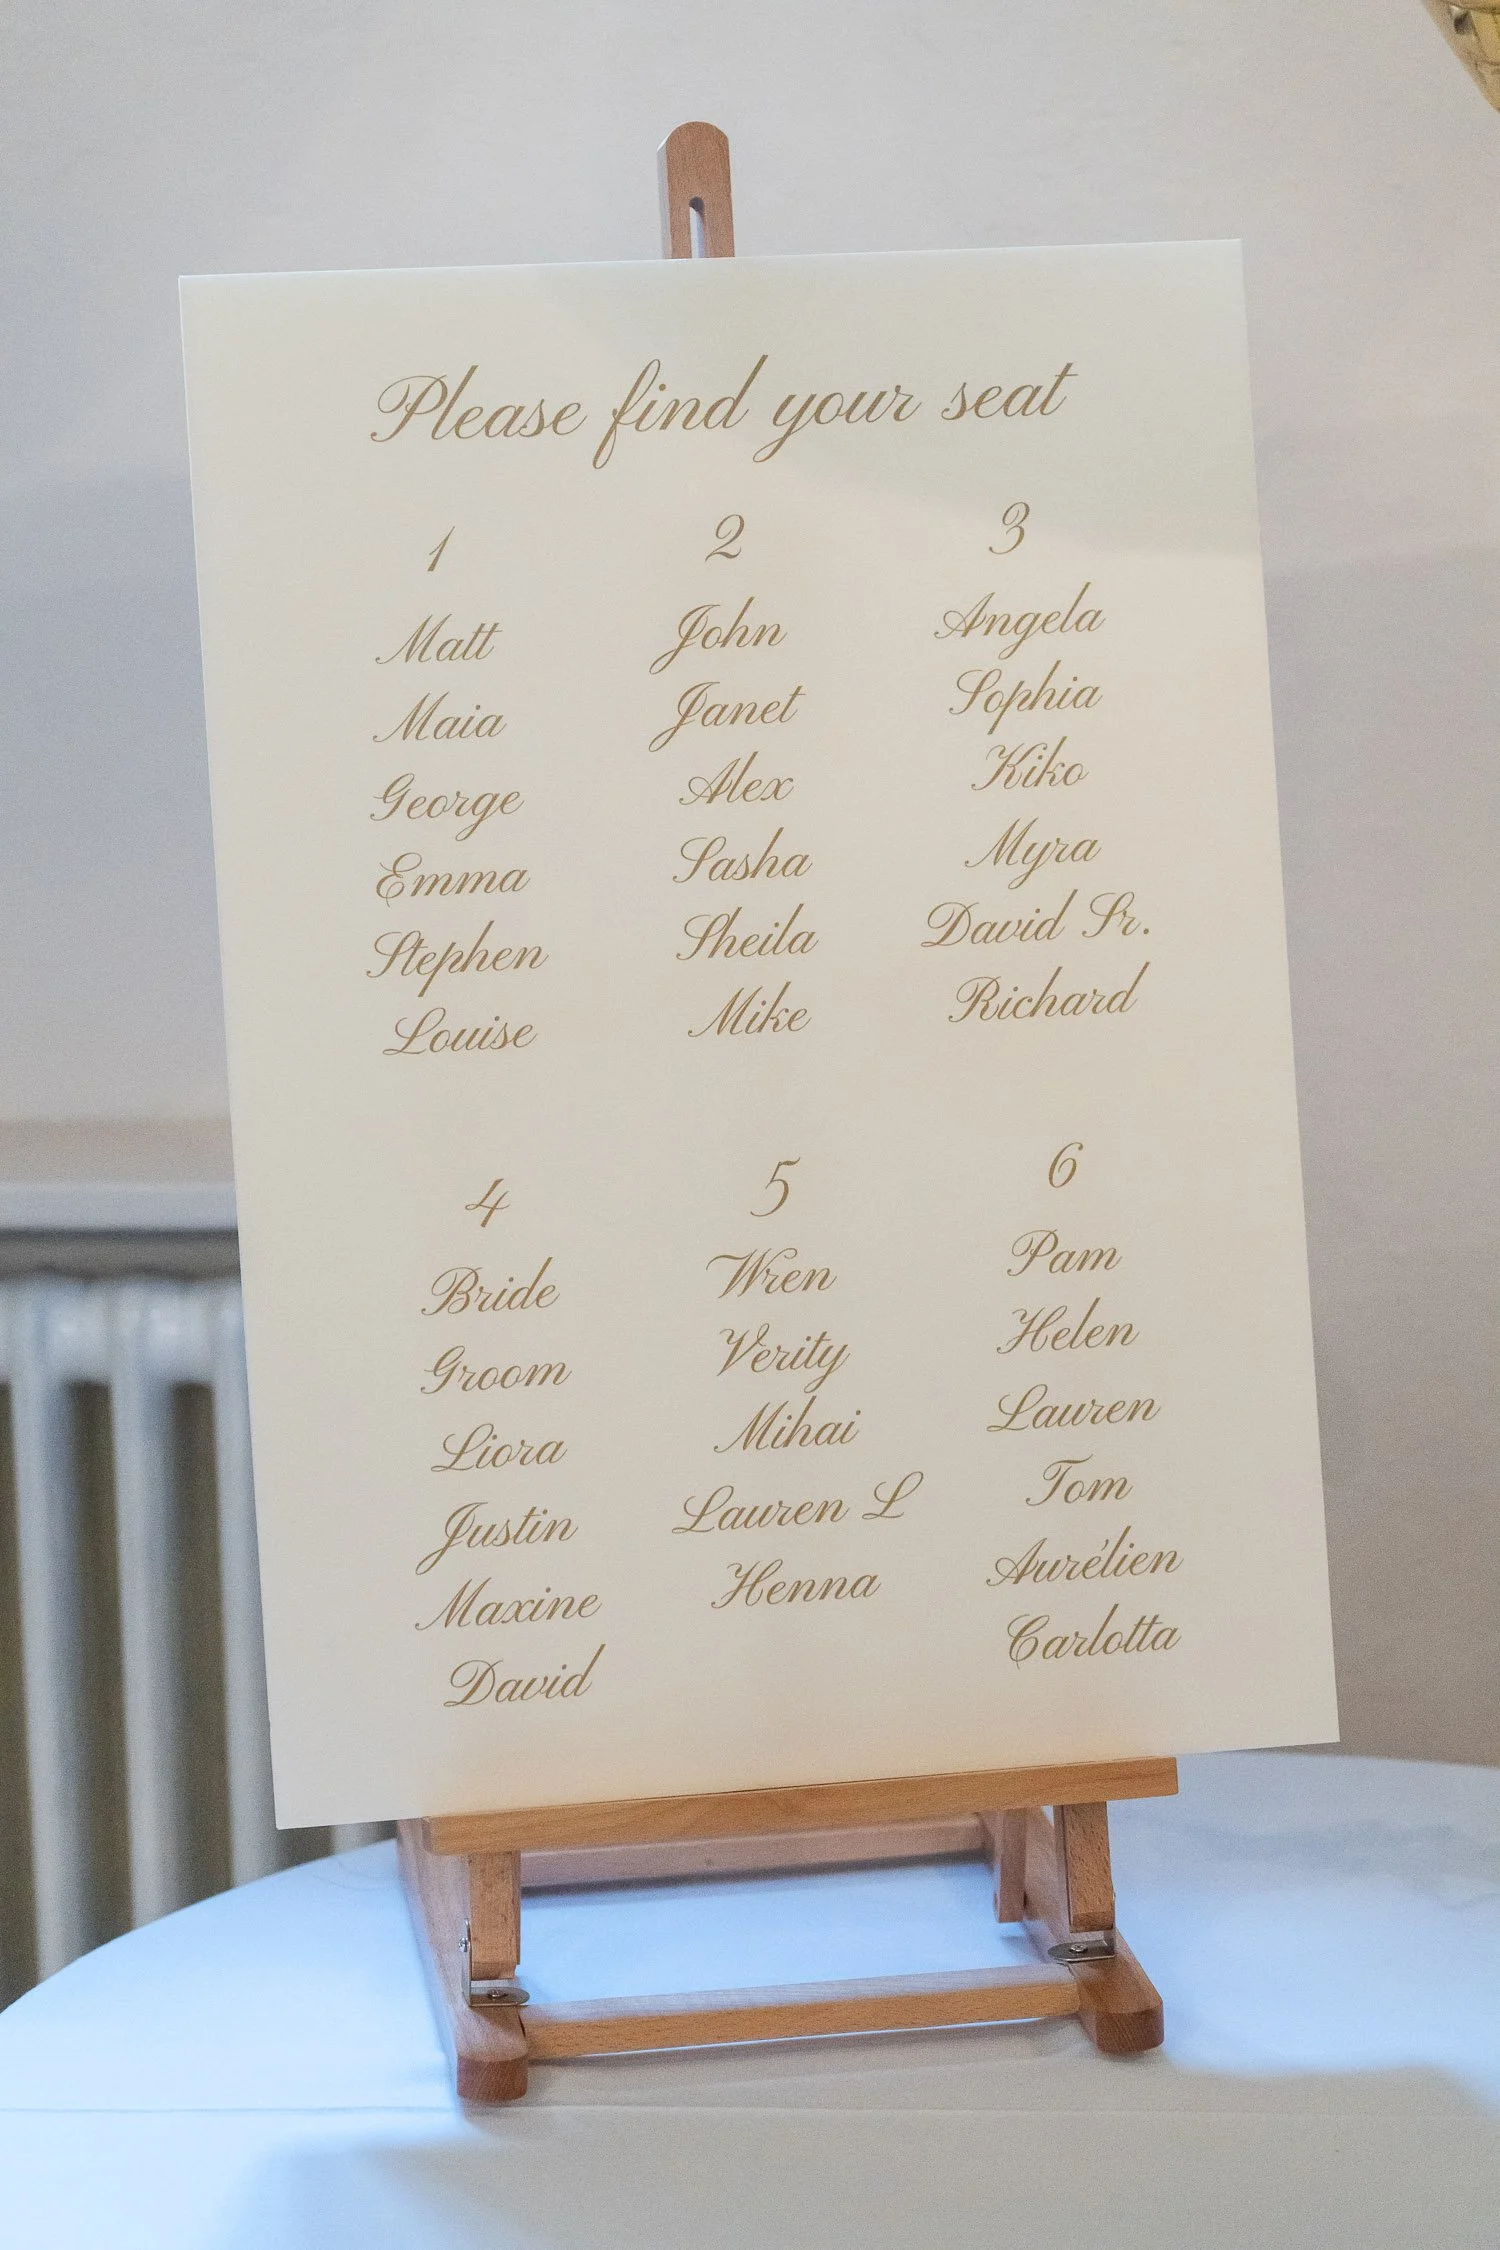 Please find your seat
1
Matt
Maia
George
Emma
Stephen
Louise
2
John
Janet
Alex
Sasha
Sheila
Mike
3
Angela
Sophia
Kiko
Myra
David Sr.
Richard
4
Bride
Groom
Liora
Justin
Maxine
David
5
Wren
Verity
Mihai
Lauren L
Henna
6
Pam
Helen
Lauren
Tom
Aurélien
Carlotta